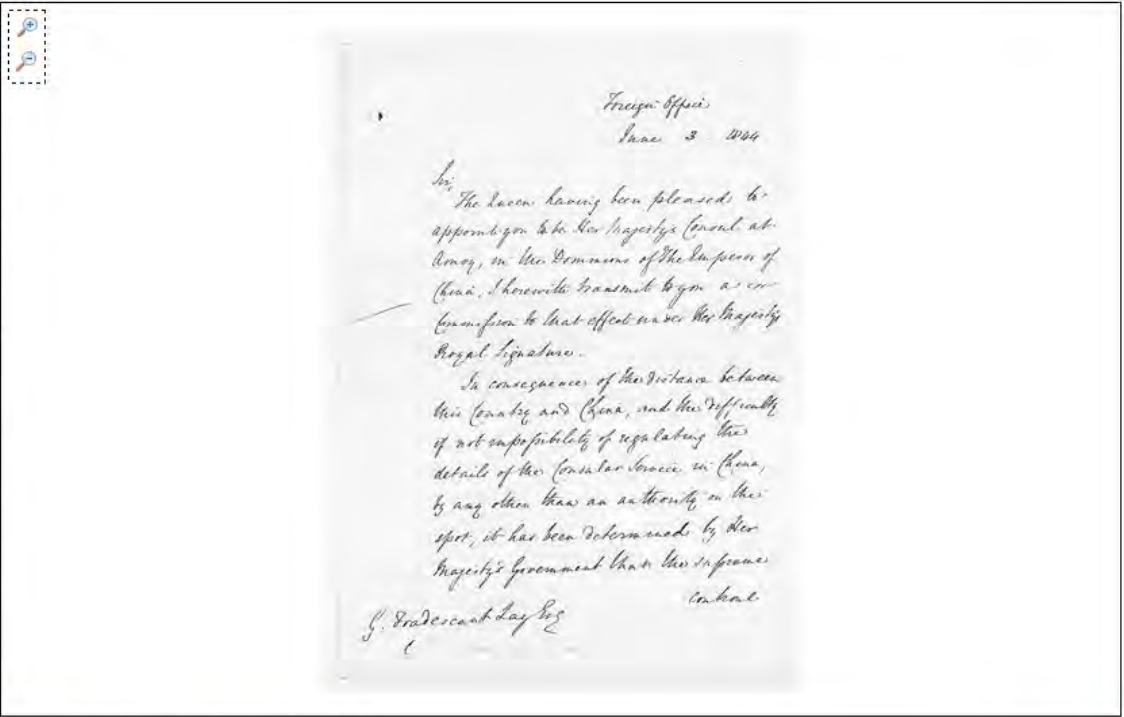 Foreign Office
June 3 1844
Sir,
The Queen having been pleased to
appoint you to be Her Majesty's Consul at
Amoy, in the Dominions of the Emperor of
China, I herewith transmit to you a
Commission to that effect under Her Majesty's
Royal Signature.
In consequence of the distance between
this Country and China, and the difficulty
if not impossibility of regulating the
details of the Consular Service in China,
by any other than an authority on the
spot, it has been determined by Her
Majesty's Government that the supreme
controul
G. Tradescant Lay Esq